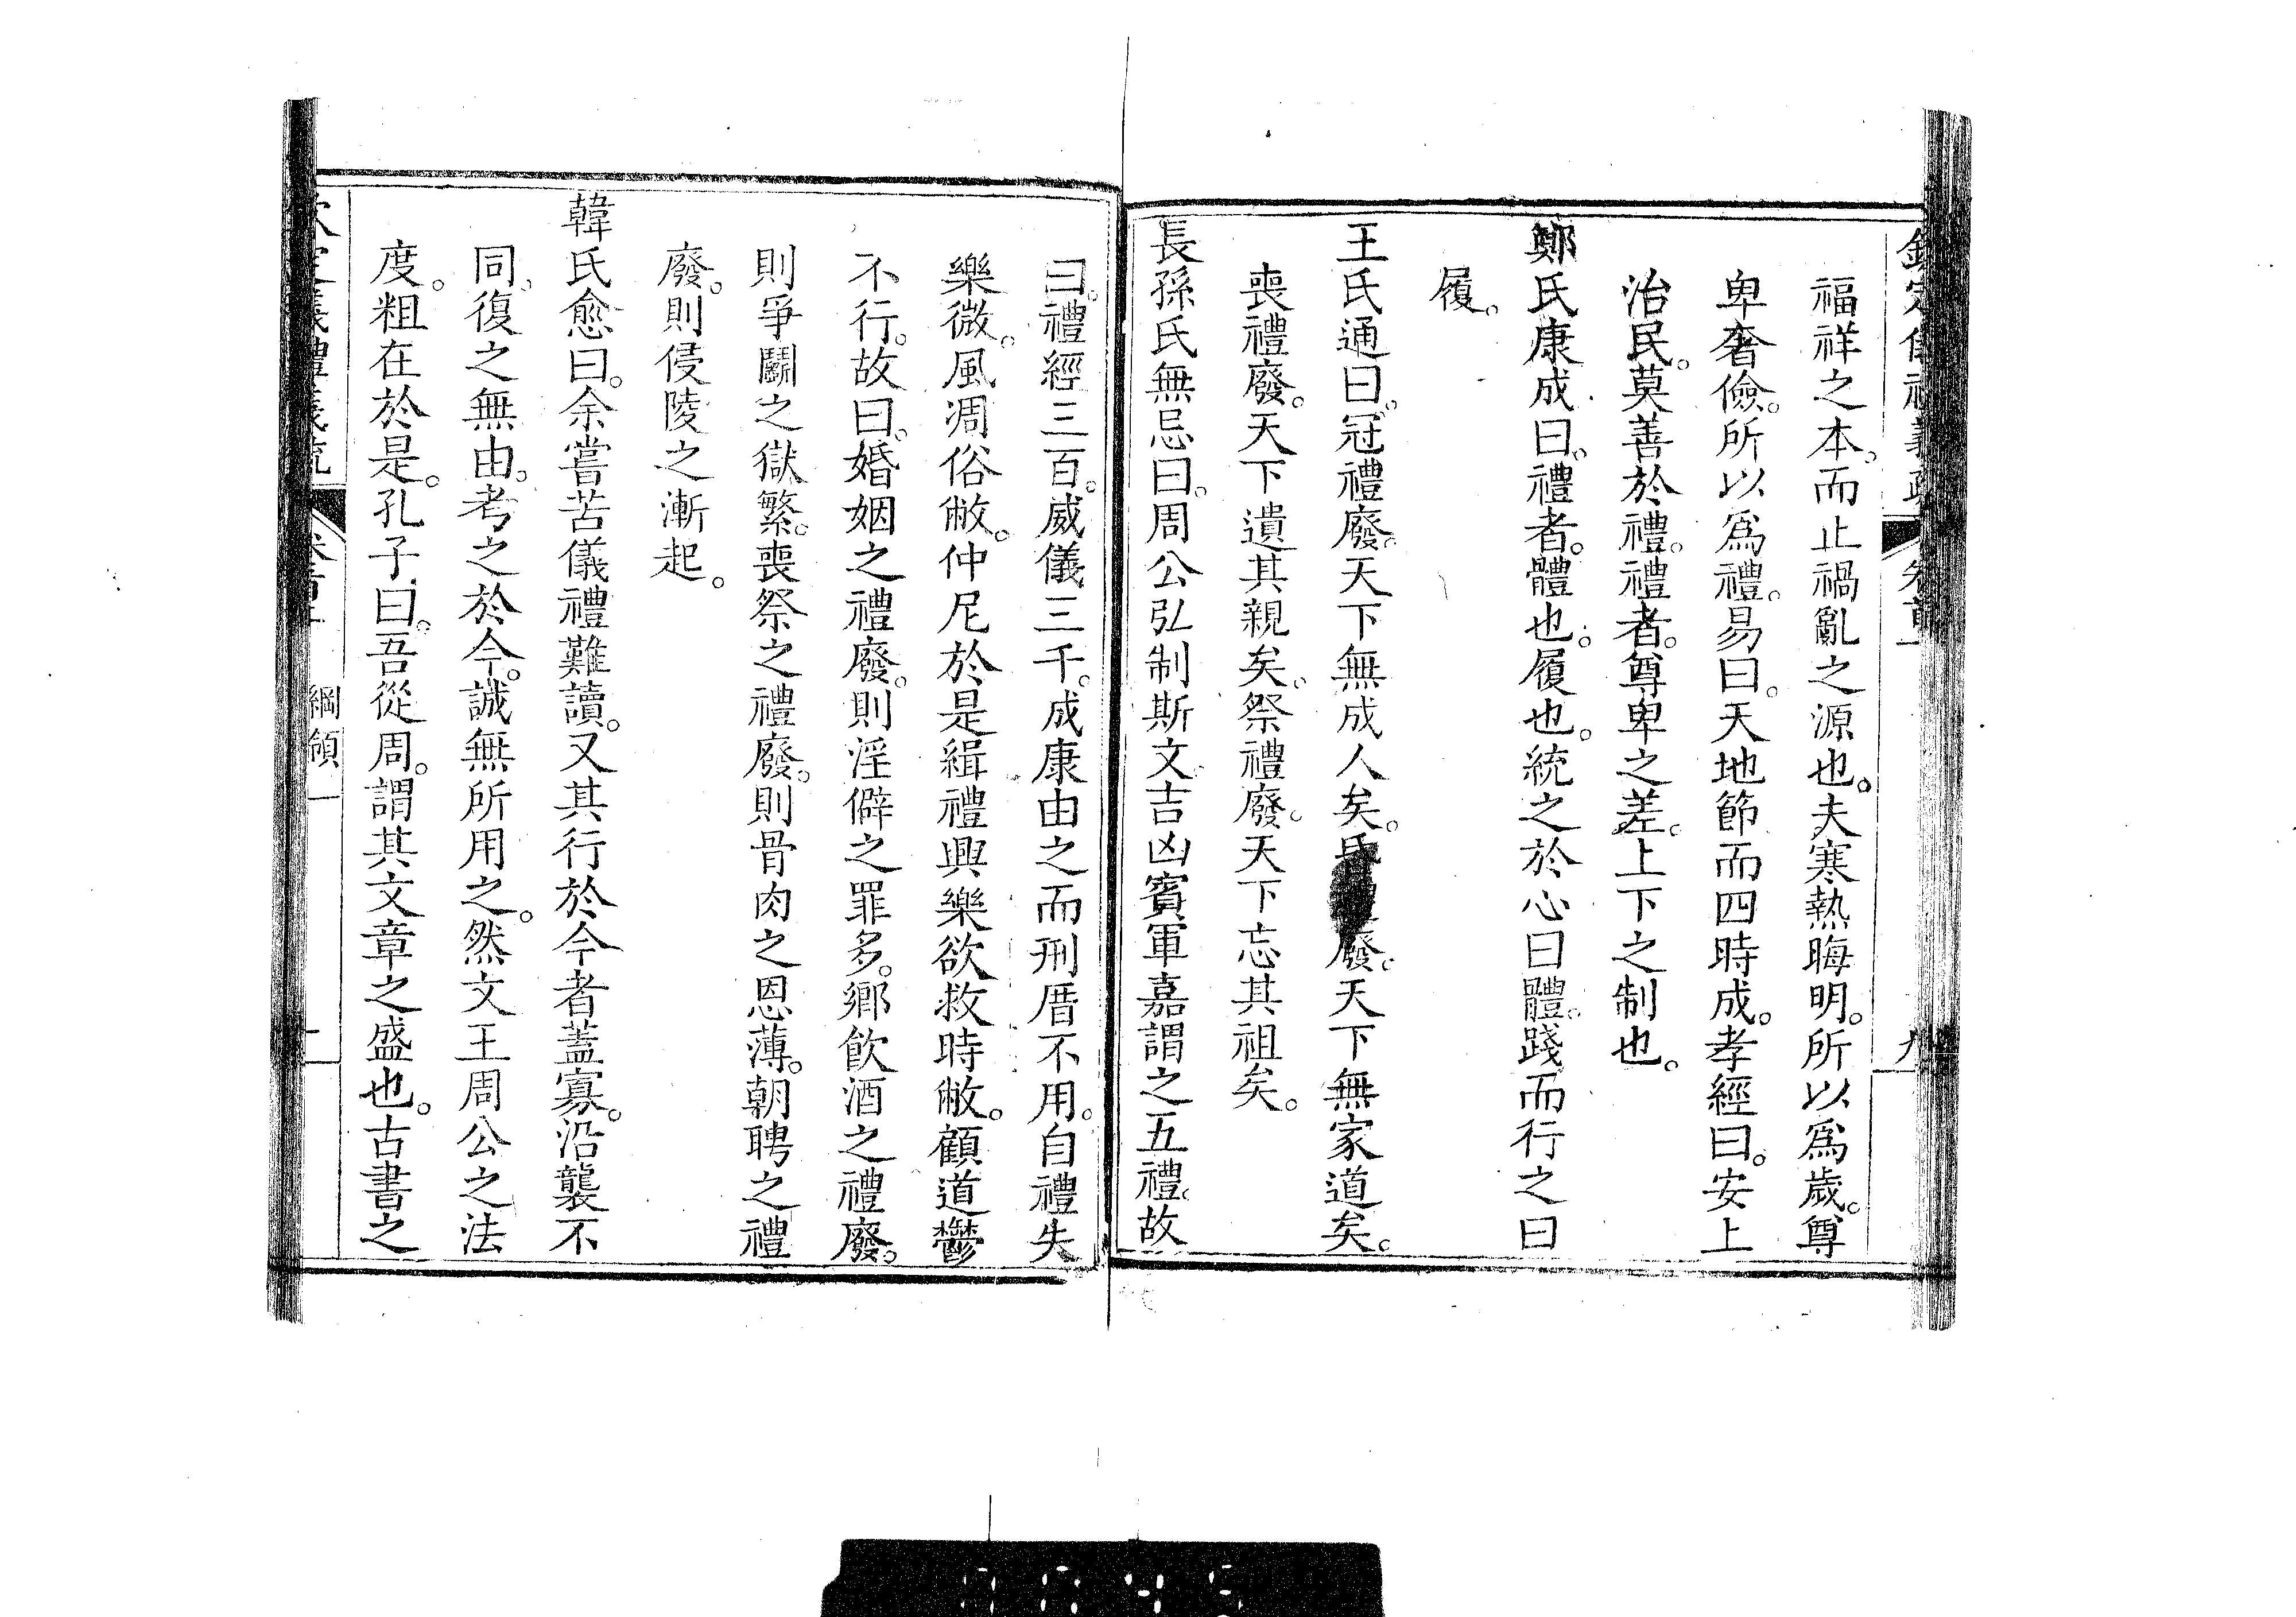 福祥之本。而止禍亂之源也。夫寒熱晦明。所以爲歲。尊
卑奢儉。所以爲禮。易曰。天地節而四時成。孝經曰。安上
治民。莫善於禮。禮者。尊卑之差。上下之制也。
鄭氏康成曰。禮者。體也。履也。統之於心曰體。踐而行之曰
履。
王氏通曰。冠禮廢。天下無成人矣。廢。天下無家道矣。
喪禮廢。天下遺其親矣。祭禮廢。天下忘其祖矣。
長孫氏無忌曰。周公弘制斯文。吉凶賓軍嘉謂之五禮。故
曰。禮經三百。威儀三千。成康由之而刑厝不用。自禮失
樂微。風凋俗敝。仲尼於是緝禮興樂欲救時敝。顧道鬱
不行。故曰。婚姻之禮廢。則淫僻之罪多。鄉飲酒之禮廢。
則爭鬭之獄繁。喪祭之禮廢。則骨肉之恩薄。朝聘之禮
廢。則侵陵之漸起。
韓氏愈曰。余嘗苦儀禮難讀。又其行於今者蓋寡。沿襲不
同。復之無由。考之於今。誠無所用之。然文王周公之法
度。粗在於是。孔子曰。吾從周。謂其文章之盛也。古書之
綱領一